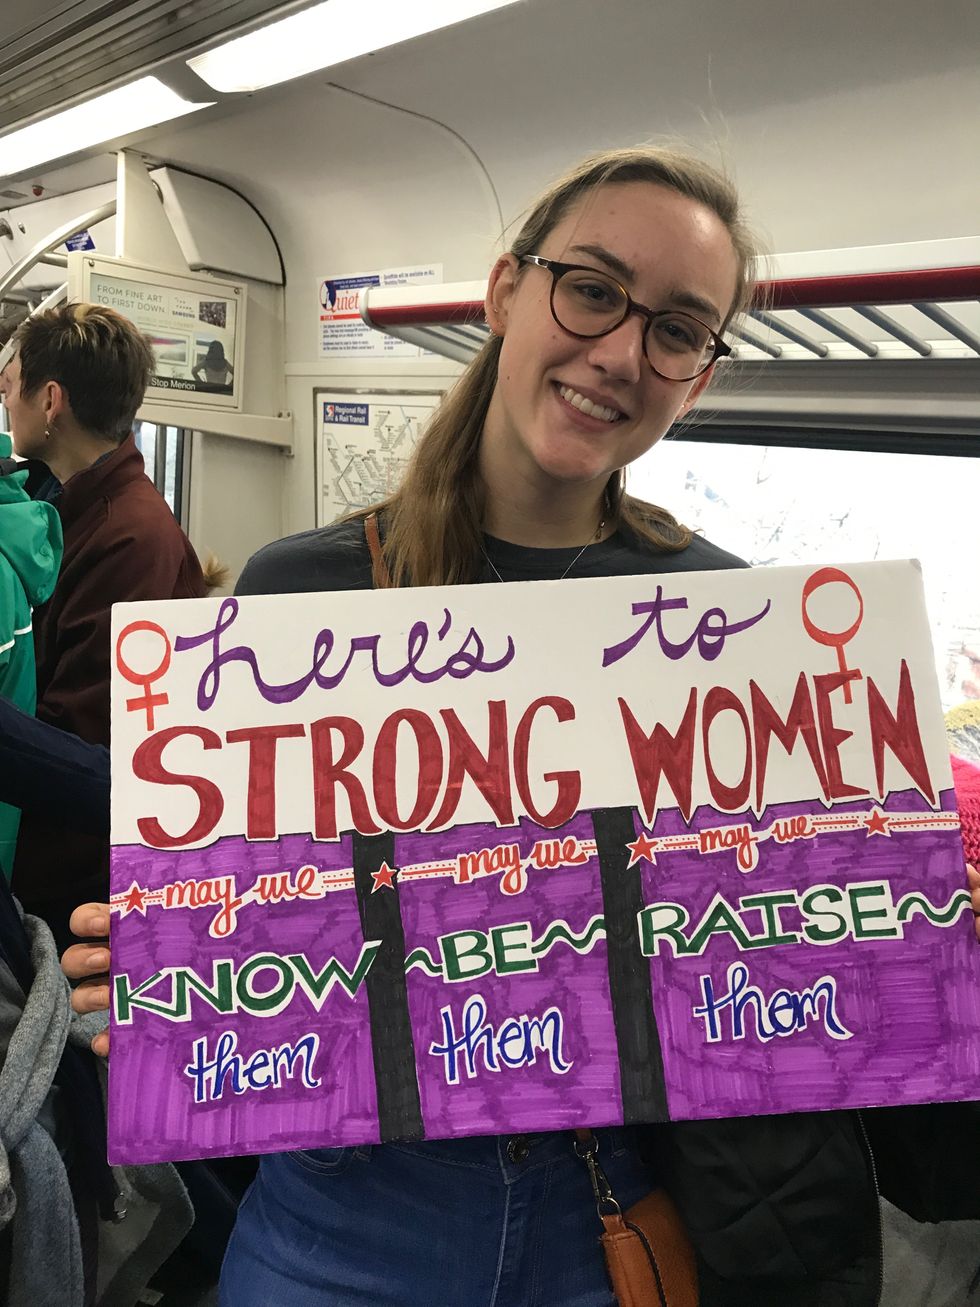 FROM FINE ART
TO FIRST DOWN.
SAMSUNG
Stop Merion
Quiet
Regional Rail
& Rail Transit
here's to
STRONG WOMEN
may we may we may we
KNOW BE RAISE
them them them